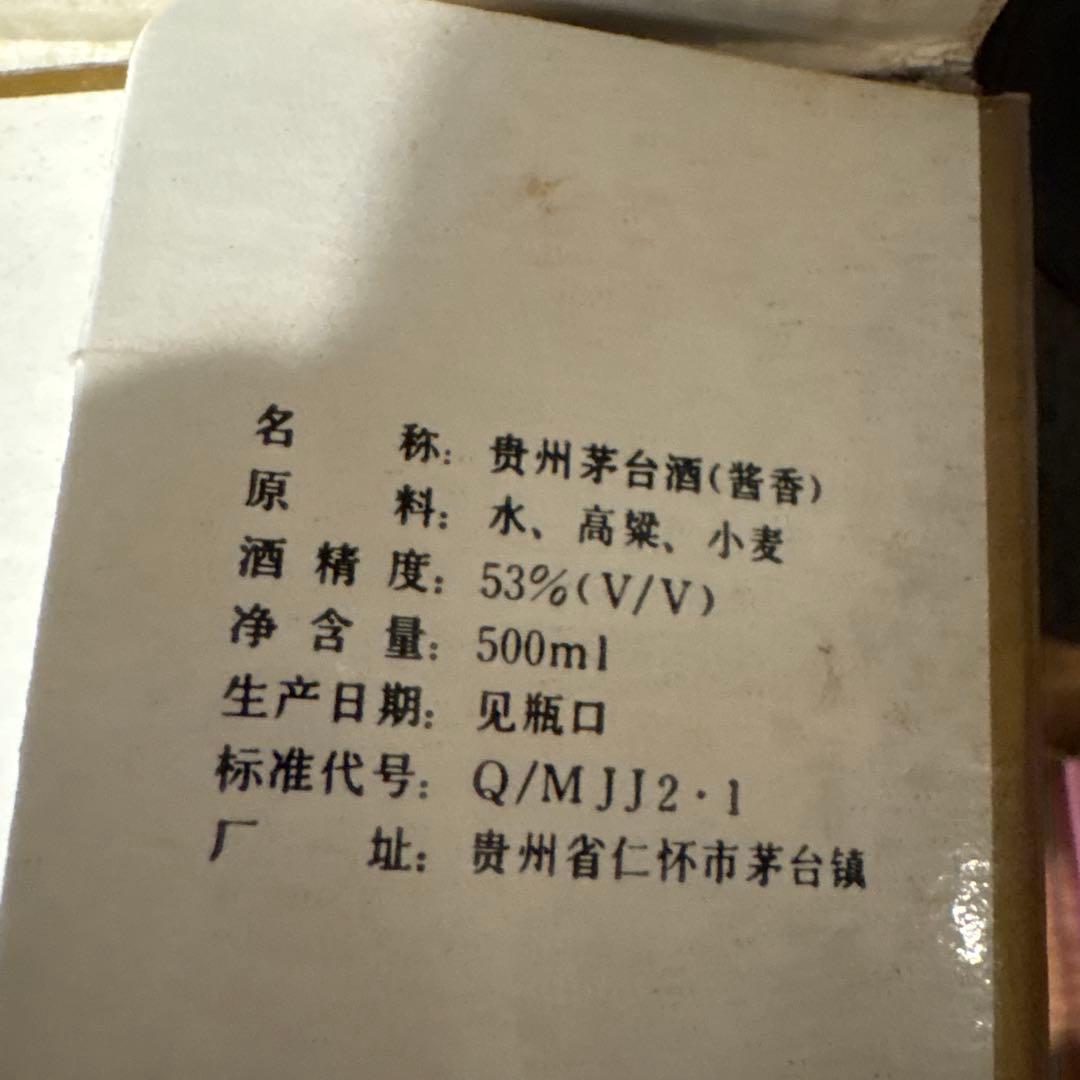 名称：贵州茅台酒(酱香)
原料：水、高粱、小麦
酒精度：53%(V/V)
净含量：500ml
生产日期：见瓶口
标准代号：Q/MJJ2·1
厂址：贵州省仁怀市茅台镇